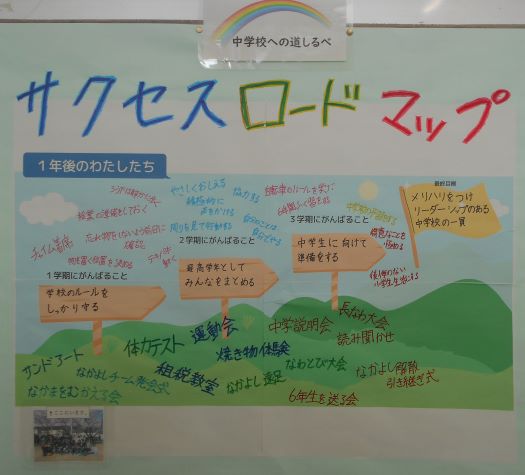 中学校への道しるべ
サクセスロードマップ
1年後のわたしたち
やさしくおしえる
積極的に
声をかける
協力する
周りを見て行動する
自分のことは
自分でやる
授業の準備をしておく
チャイム着席
忘れ物をしないよう前日に
確認
1学期にがんばること
2学期にがんばること
3学期にがんばること
最終目標
メリハリをつけ
リーダーシップのある
中学校の一員
後悔のない
小学生生活にする
学校のルールを
しっかり守る
最高学年として
みんなをまとめる
中学生に向けて
準備をする
サンドアート
なかよしチーム発会式
なかまをむかえる会
体力テスト
租税教室
運動会
焼き物体験
なかよし遠足
中学説明会
なわとび大会
6年生を送る会
長なわ大会
読み聞かせ
なかよし解散
引き継ぎ式